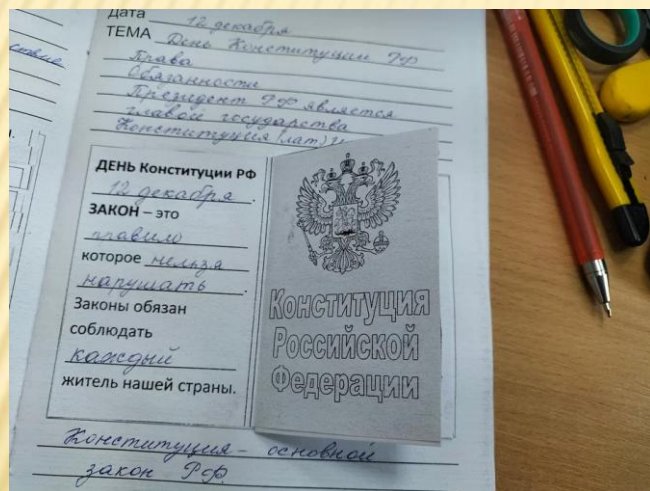 Дата 12 декабря
ТЕМА День Конституции РФ
Права
Обязанности
Президент РФ является
главой государства
Конституция (лат)
ДЕНЬ Конституции РФ
12 декабря.
ЗАКОН – это
правило
которое нельзя
нарушать.
Законы обязан
соблюдать
каждый
житель нашей страны.
Конституция
Российской
Федерации
Конституция – основной
закон РФ